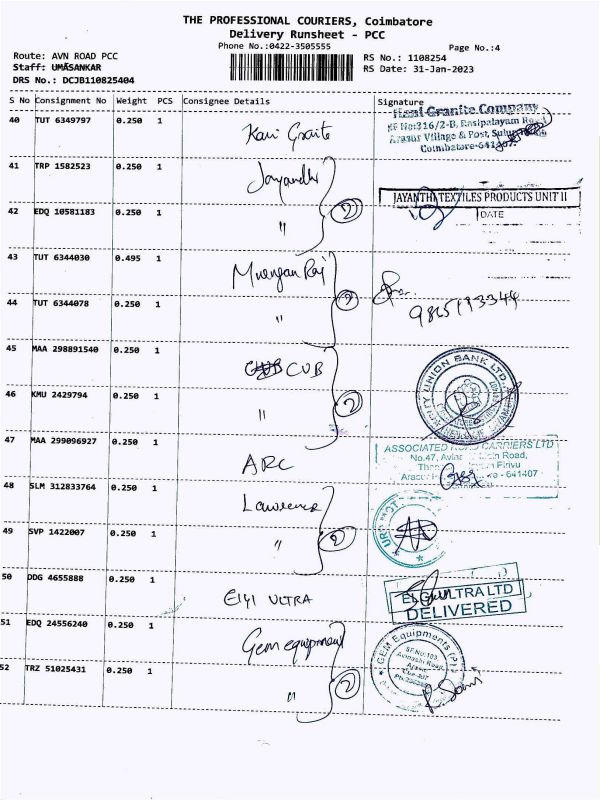 THE PROFESSIONAL COURIERS, Coimbatore
Delivery Runsheet - PCC
Phone No.:0422-3505555
Page No.:4
Route: AVN ROAD PCC
RS No.: 1108254
Staff: UMASANKAR
RS Date: 31-Jan-2023
DRS No.: DCJB110825404
S No Consignment No Weight PCS Consignee Details Signature
40 TUT 6349797 0.250 1
Granite Company
SF No:316/2-B, Rasipalayam Road
Arasur Village & Post,
Coimbatore-641407.
41 TRP 1582523 0.250 1 Jayandhi
JAYANTHI TEXTILES PRODUCTS UNIT II
DATE
42 EDQ 10581183 0.250 1 " 2
43 TUT 6344030 0.495 1 Murugan Raj
44 TUT 6344078 0.250 1 " 2
45 MAA 298891540 0.250 1 CUB
CITY UNION BANK LTD.
46 KMU 2429794 0.250 1 " 2
47 MAA 299096927 0.250 1 ARC
ASSOCIATED ROAD CARRIERS LTD
No.47, Road,
Pirivu
- 641407
48 SLM 312833764 0.250 1 Lawrence
49 SVP 1422007 0.250 1 " 2
50 DDG 4655888 1 Elgi ULTRA
ELGI ULTRA LTD
DELIVERED
51 EDQ 24556240 0.250 1 Gem equipment
GEM Equipments (P)
52 TRZ 51025431 0.250 1 " 2